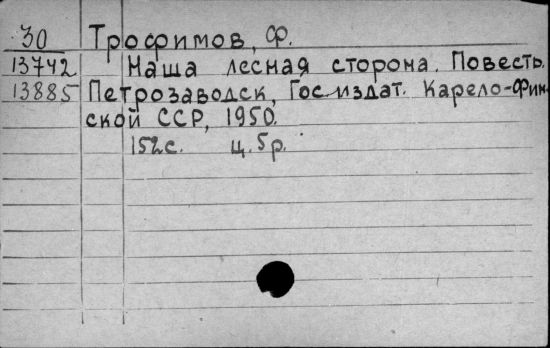 30 Трофимов, Ф.
13742 Наша лесная сторона. Повесть.
13885 Петрозаводск, Госиздат. Карело-Фин-
ской ССР, 1950.
152с. Ц. 5р.